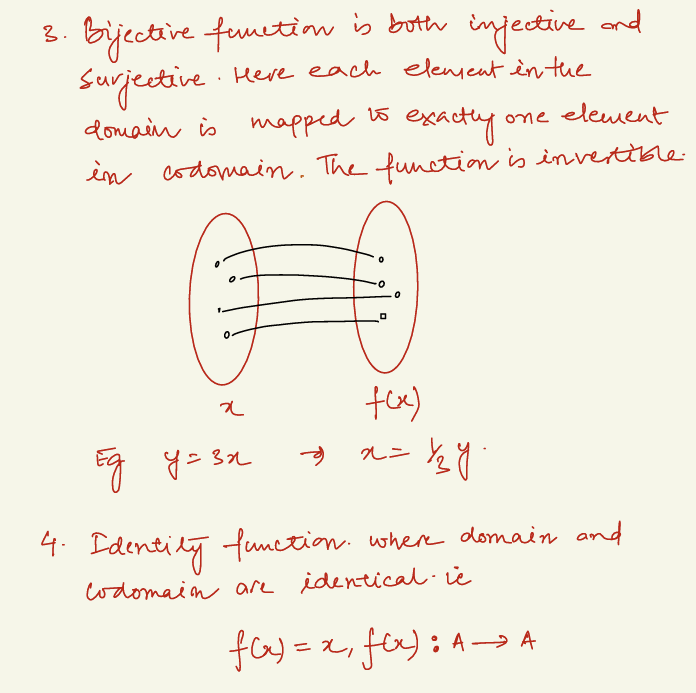 3. Bijective function is both injective and
surjective. Here each element in the
domain is mapped to exactly one element
in codomain. The function is invertible.
x f(x)
Eg y = 3x → x = 1/3 y.
4. Identity function. where domain and
codomain are identical. ie
f(x) = x, f(x) : A → A